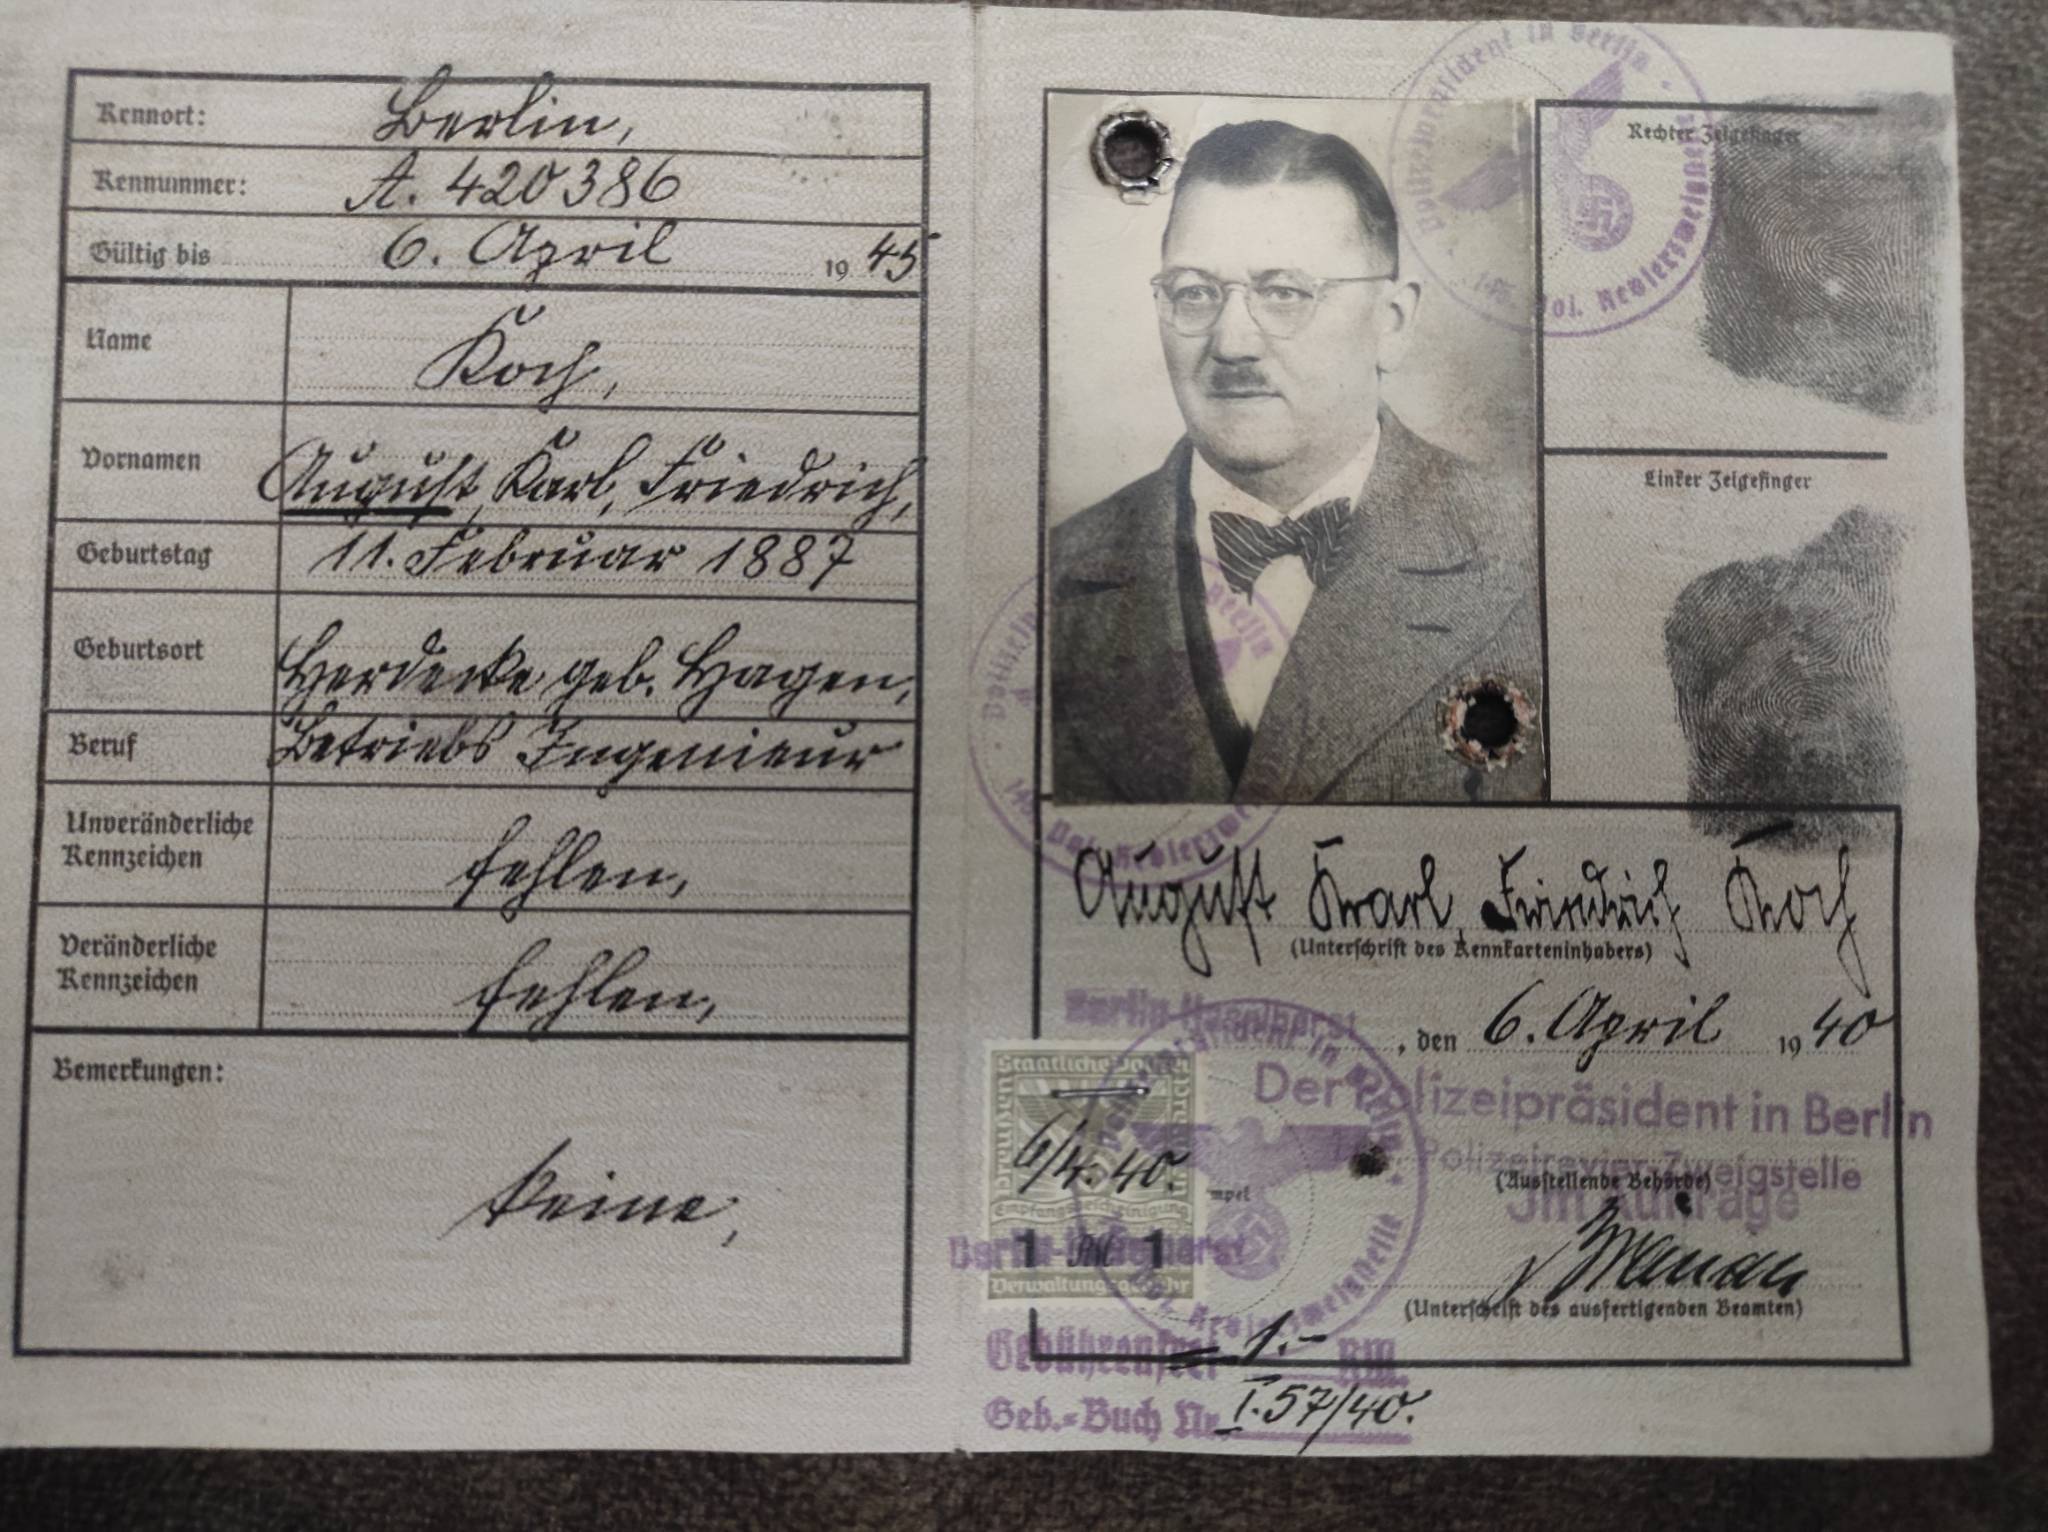 Kennort: Berlin,
Kennummer: A. 420386
Gültig bis 6. April 1945
Name Koch,
Vornamen August, Karl, Friedrich,
Geburtstag 11. Februar 1887
Geburtsort Herdecke geb. Hagen,
Beruf Betriebs Ingenieur
Unveränderliche
Kennzeichen fehlen,
Veränderliche
Kennzeichen fehlen,
Bemerkungen:
keine,
Polizeipräsident in Berlin
Pol. Revierzweigstelle
Rechter Zeigefinger
Linker Zeigefinger
Polizeipräsident in Berlin
Pol. Revierzweigstelle
August Karl, Friedrich Koch
(Unterschrift des Kennkarteninhabers)
Berlin-Haselhorst, den 6. April 1940
Der Polizeipräsident in Berlin
Polizeirevier-Zweigstelle
(Ausstellende Behörde)
Im Auftrage
(Unterschrift des ausfertigenden Beamten)
Polizeipräsident in Berlin
Pol. Revierzweigstelle
Staatliche Polizei
Preußen
6/4. 40.
Empfangsbescheinigung
1 RM 1
Berlin-Haselhorst
Verwaltungsgebühr
Gebührenfrei 1.- RM.
Geb.-Buch Nr. I.57/40.